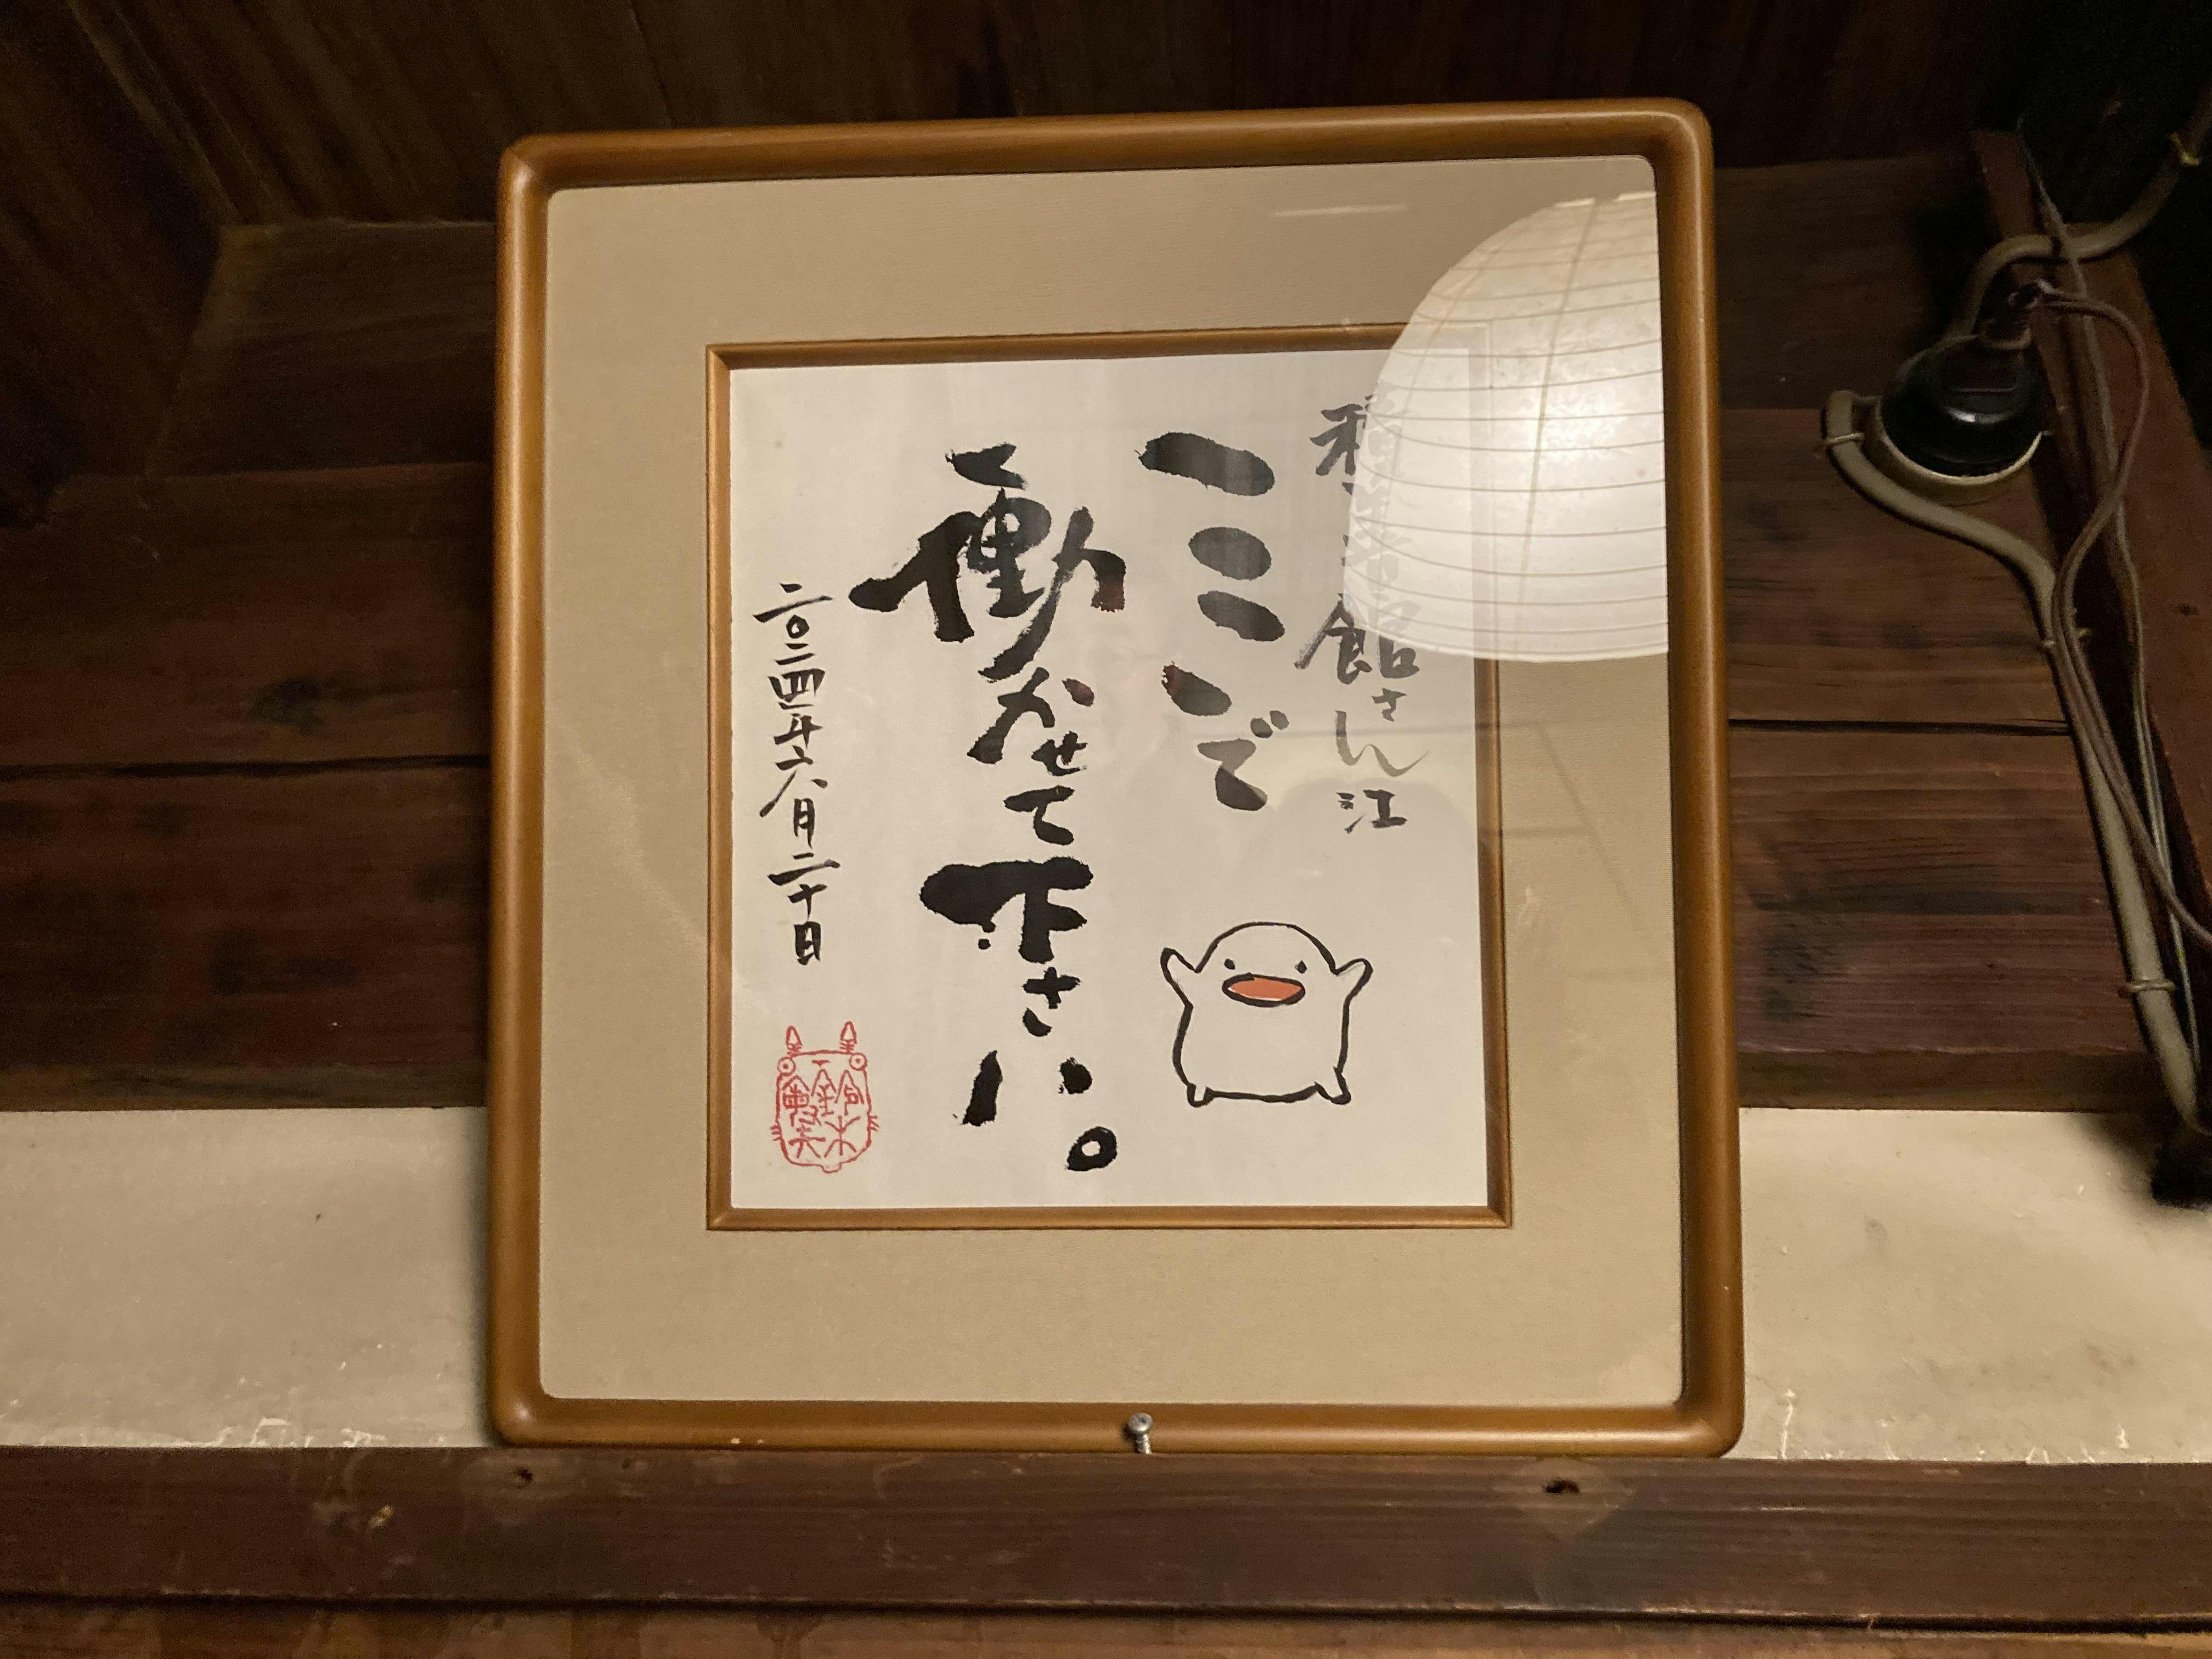 積善館さん江
ここで
働かせて下さい。
二〇二四年六月二十日
鈴木
敏夫